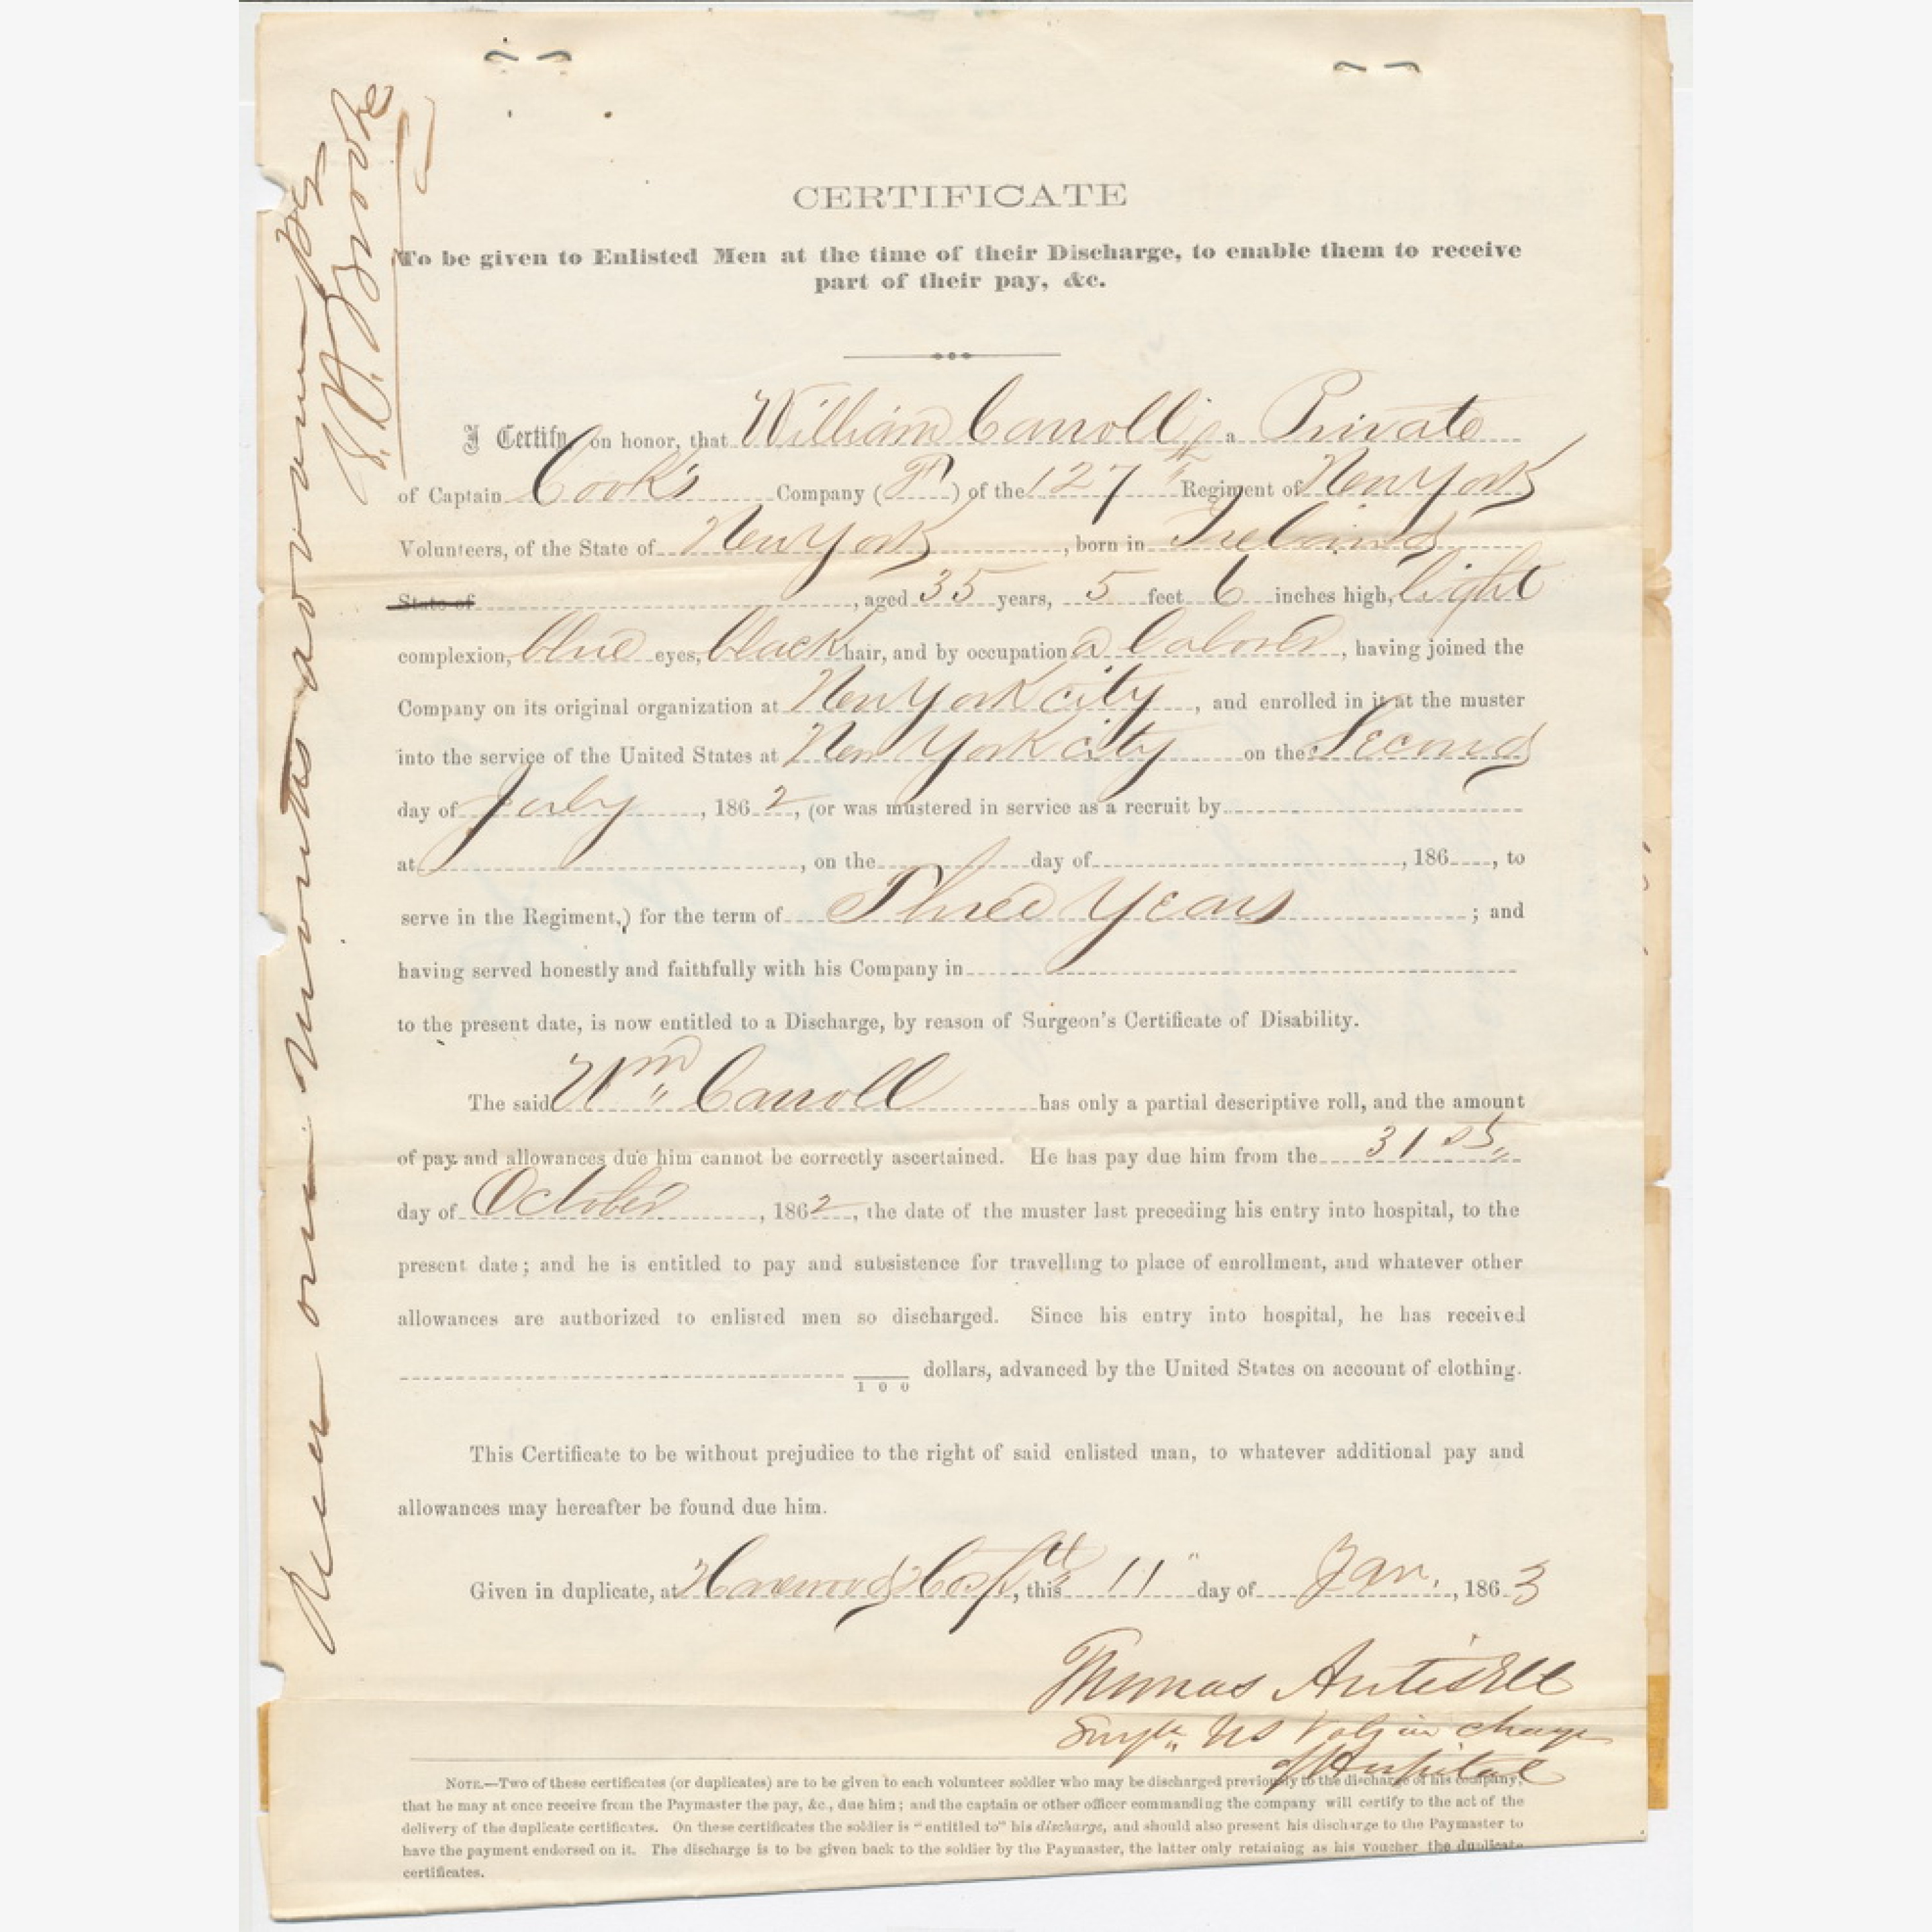 CERTIFICATE
To be given to Enlisted Men at the time of their Discharge, to enable them to receive
part of their pay, &c.
I Certify, on honor, that William Carroll, a Private
of Captain Cook's Company (F) of the 127th Regiment of New York
Volunteers, of the State of New York, born in Ireland
State of , aged 35 years, 5 feet 6 inches high, light
complexion, blue eyes, black hair, and by occupation a laborer, having joined the
Company on its original organization at New York city, and enrolled in it at the muster
into the service of the United States at New York city on the Second
day of July, 1862, (or was mustered in service as a recruit by
at , on the day of , 186 , to
serve in the Regiment,) for the term of Three Years ; and
having served honestly and faithfully with his Company in
to the present date, is now entitled to a Discharge, by reason of Surgeon's Certificate of Disability.
The said Wm Carroll has only a partial descriptive roll, and the amount
of pay and allowances due him cannot be correctly ascertained. He has pay due him from the 31st
day of October, 1862, the date of the muster last preceding his entry into hospital, to the
present date; and he is entitled to pay and subsistence for travelling to place of enrollment, and whatever other
allowances are authorized to enlisted men so discharged. Since his entry into hospital, he has received
100 dollars, advanced by the United States on account of clothing.
This Certificate to be without prejudice to the right of said enlisted man, to whatever additional pay and
allowances may hereafter be found due him.
Given in duplicate, at Harewood Hospt, this 11th day of Jan., 1863
Thomas Antisell
Surgn US Vols in charge
of Hospital
NOTE.—Two of these certificates (or duplicates) are to be given to each volunteer soldier who may be discharged previously to the discharge of his company,
that he may at once receive from the Paymaster the pay, &c., due him; and the captain or other officer commanding the company will certify to the act of the
delivery of the duplicate certificates. On these certificates the soldier is "entitled to" his discharge, and should also present his discharge to the Paymaster to
have the payment endorsed on it. The discharge is to be given back to the soldier by the Paymaster, the latter only retaining as his voucher the duplicate
certificates.
one months
Brooke